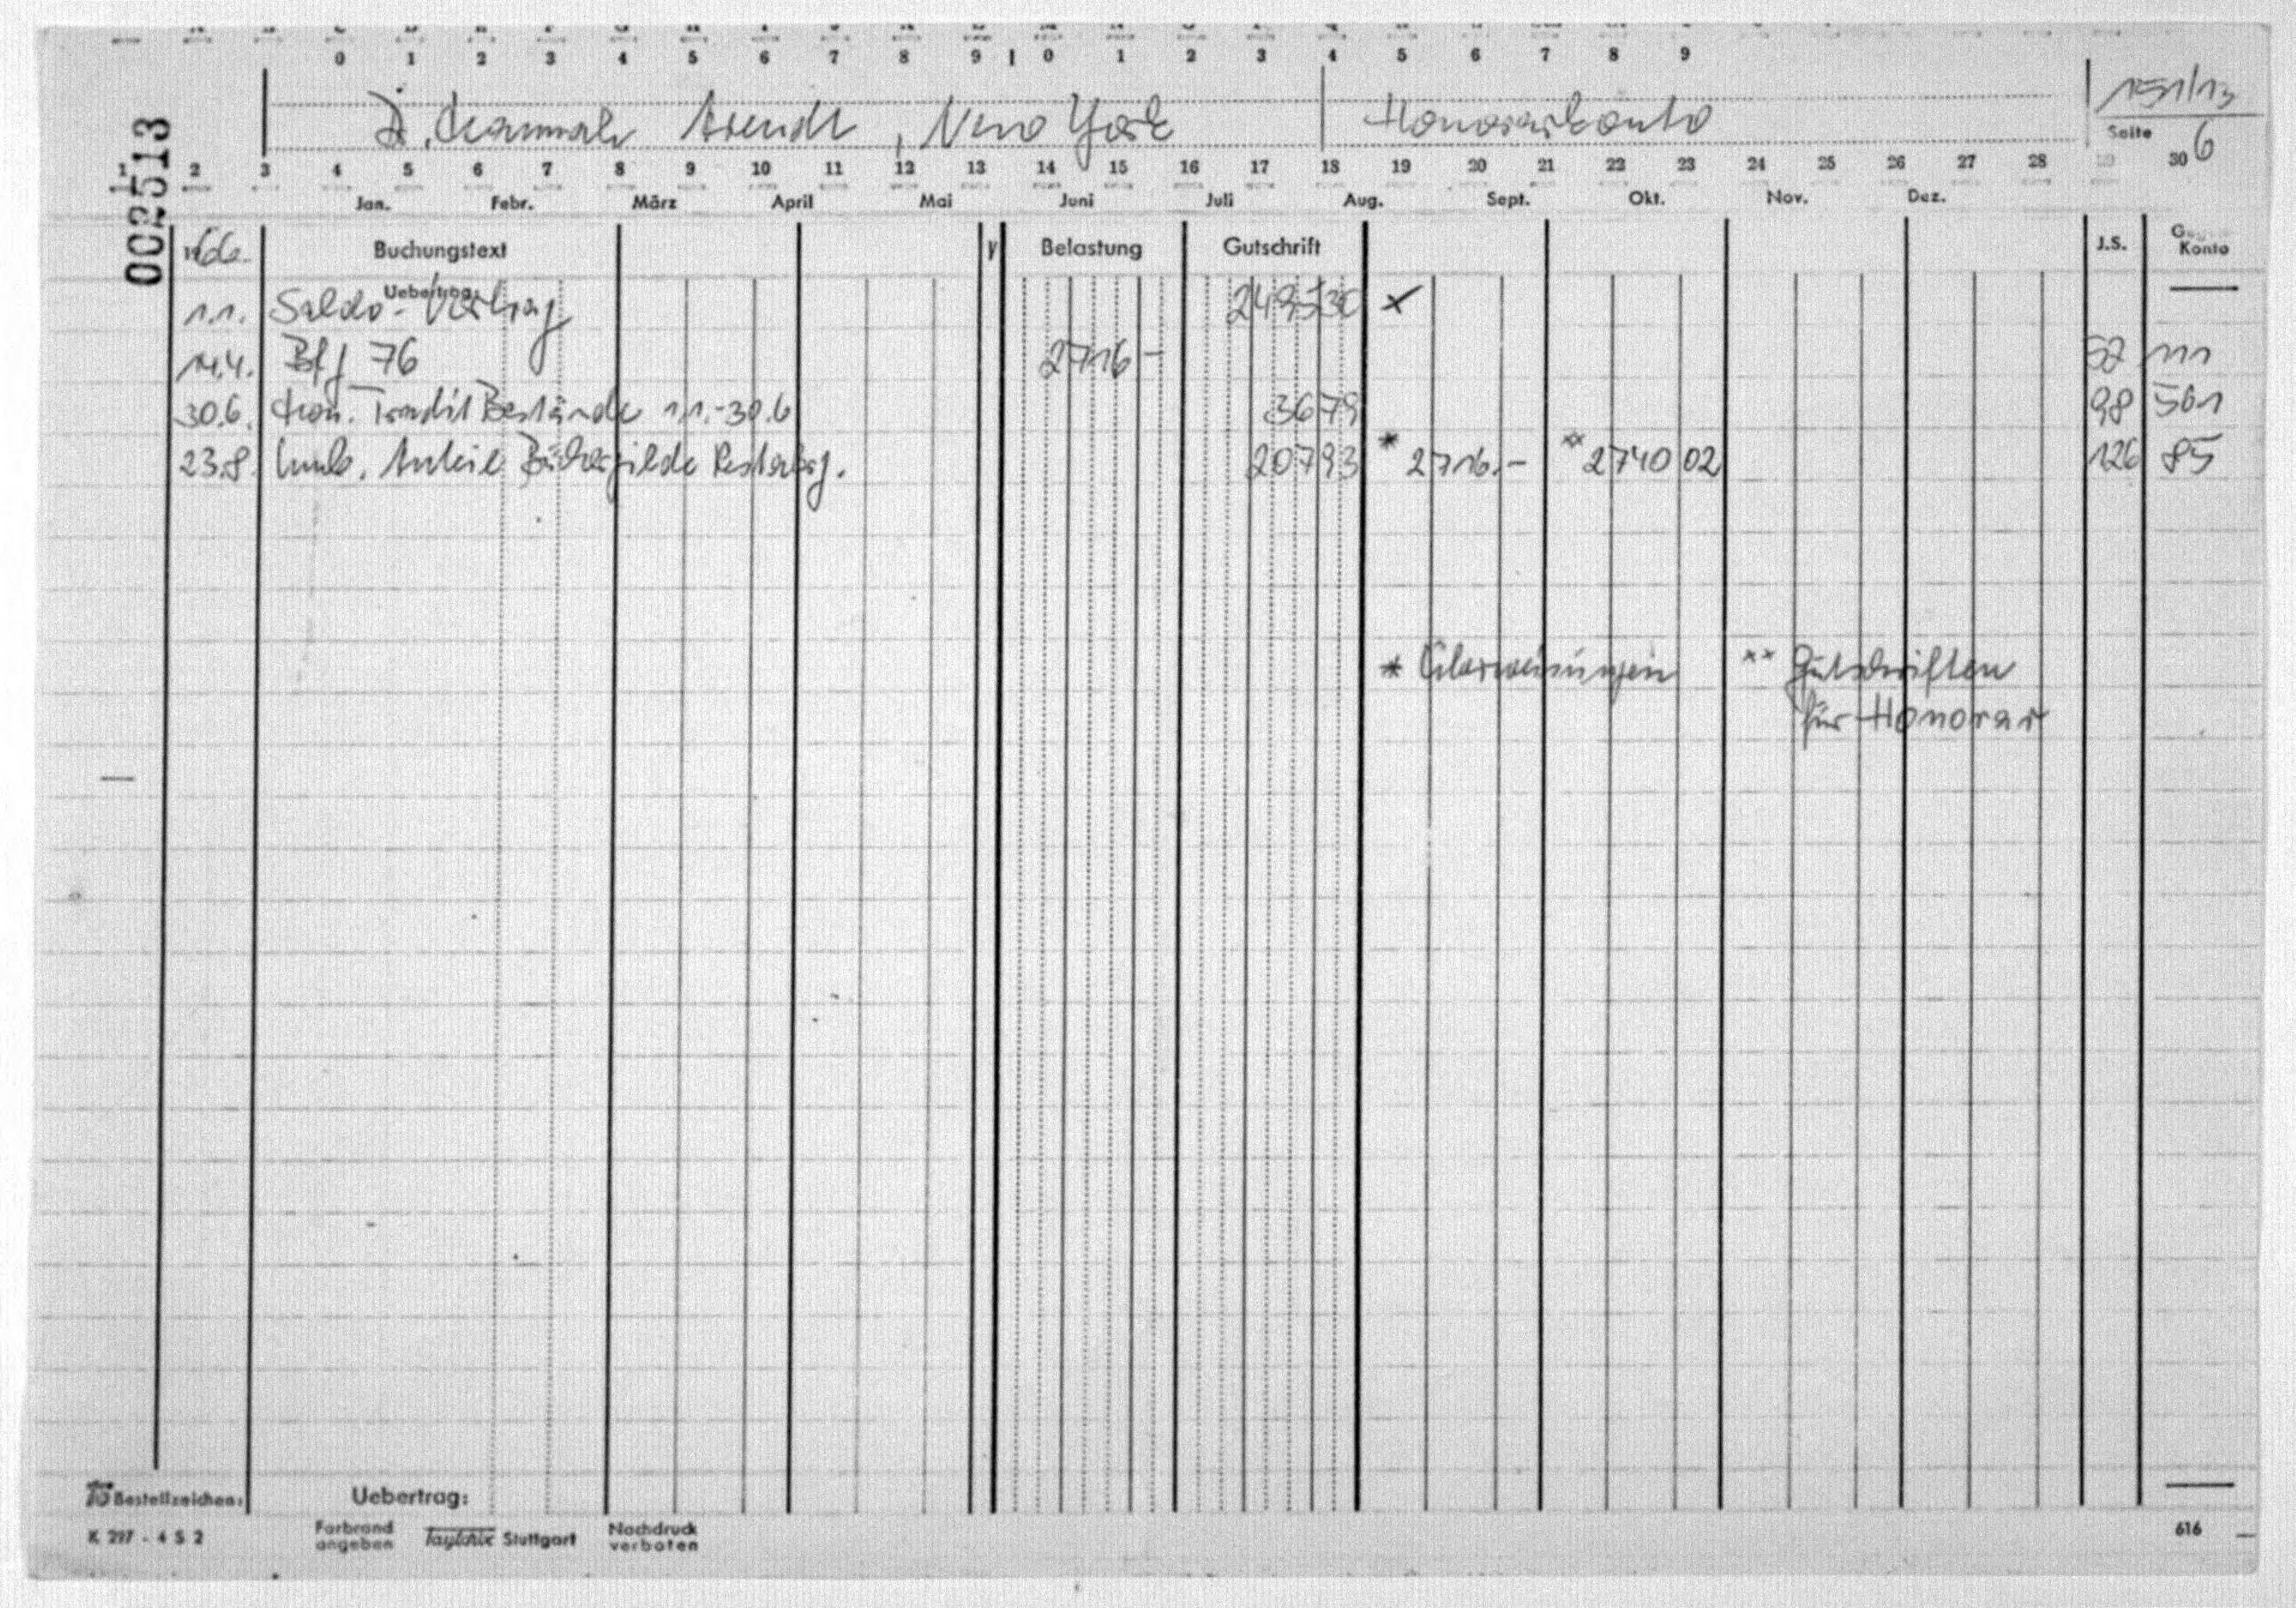 0 1 2 3 4 5 6 7 8 9 0 1 2 3 4 5 6 7 8 9
002513
Dr. Hannah Arendt, New York Honorarkonto 151/13
Seite 6
1 2 3 4 5 6 7 8 9 10 11 12 13 14 15 16 17 18 19 20 21 22 23 24 25 26 27 28 30
Jan. Febr. März April Mai Juni Juli Aug. Sept. Okt. Nov. Dez.
1966. Buchungstext V Belastung Gutschrift J.S. Gegen Konto
Uebertrag:
1.1. Saldo-Vortrag 2495 30 x
14.4. Bfj 76 2716 - 52 111
30.6. Hon. Tradit Bestände 1.1.-30.6 36 79 98 501
23.8. Anteil Büchergilde Restarbg. 207 93 * 2716.- ** 2740 02 126 85
* Überweisungen ** Gutschriften
für Honorar
Bestellzeichen: Uebertrag:
K 297 - 4 S 2 Farbrand angeben Taylorix Stuttgart Nachdruck verboten 616